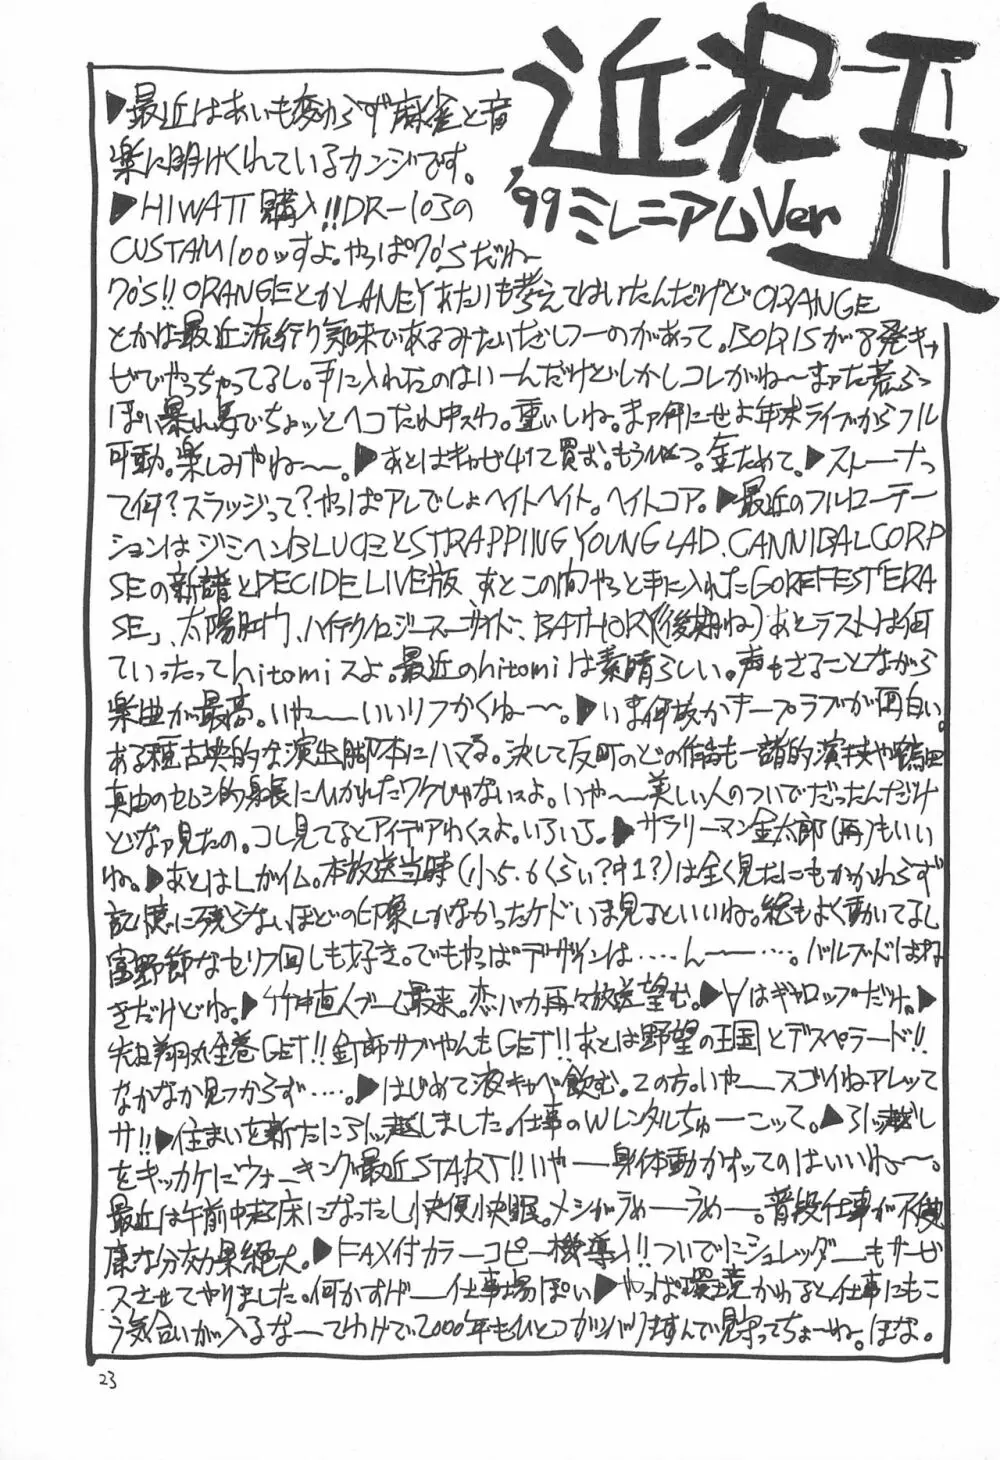 近況王
'99ミレニアムVer
▶最近はあいも変わらず麻雀と音
楽に明けくれているカンジです。
▶HIWATT購入!!DR-103の
CUSTAM100ッすよ。やっぱ70'Sだね〜
70's!!ORANGEとかLANEYあたりも考えてはいたんだけどORANGE
とかは最近流行り気味であるみたいだしフーのがあって。BORISが8発キャ
ビでやっちゃってるし。手に入れたのはいーんだけどしかしコレがね〜まァた荒ぶっ
ぽい暴れ馬でちょッとヘコたれ中スわ。重いしね。まァ何にせよ年末ライブからフル
可動。楽しみやね〜〜。▶あとはキャビ4つて買む。もういっつ。金ためて。▶ストーナっ
て何?スラッジって?やっぱアレでしょヘイトヘイト。ヘイトコア。▶最近のフルローテー
ションはジミヘンBLUESとSTRAPPING YOUNG LAD、CANNIBAL CORP
SEの新譜とDECIDE LIVE版、あとこの間やっと手に入れたGOREFEST「ERA
SE」、太陽肛門、ハイテクノロジースーサイド、BATHORY(後期ね)あとラストは何
ていったってhitomiスよ。最近のhitomiは素晴らしい。声もさることながら
楽曲が最高。いや〜〜いいリフかくね〜〜。▶いま何故かチープラブが面白い。
ある種古典的な演出脚本にハマる。決して反町のどの作も一緒的演技や鶴田
真由のセムシ的身長にひかれたワケじゃないスよ。いや〜〜美しい人のついでだったんだけ
どなァ見たの。コレ見てるとアイデアわくスよ。いろいろ。▶サラリーマン金太郎(再)もいい
ね。▶あとはLガイム。本放送当時(小5.6くらい?中1?)は全く見たにもかかわらず
記憶に残らないほどの印象しかなかったケドいま見るといいね。絵もよく動いてるし
富野節なセリフ回しも好き。でもやっぱデザインは……ん〜……。バルブドはすね
きだけどね。▶竹中直人ブーム最来。恋バカ再々放送望む。▶∀はギャロップだけ。▶
先日翔丸全巻GET!!釘師サブやんもGET!!あとは野望の王国とデスペラード!!
なかなか見つからず……。▶はじめて液キャベ飲む。2の方。いや〜スゴイねアレッて
サ!!▶住まいを新たに引ッ越しました。仕事のWレンタルちゅーこッて。▶引ッ越し
をキッカケにウォーキング最近START!!いや〜身体動かすッてのはいいね〜〜。
最近は午前中起床になったし快便快眠。メシがうめーうめー。普段仕事が不健
康な分効果絶大。▶FAX付カラーコピー機導入!!ついでにシュレッダーもサービ
スさせてやりました。何かすげー仕事場ぽい▶やっぱ環境かわると仕事にもこ
う気合いが入るなーてわけで2000年もひとつガンバリますんで見守ってちょーね。ほな。
23